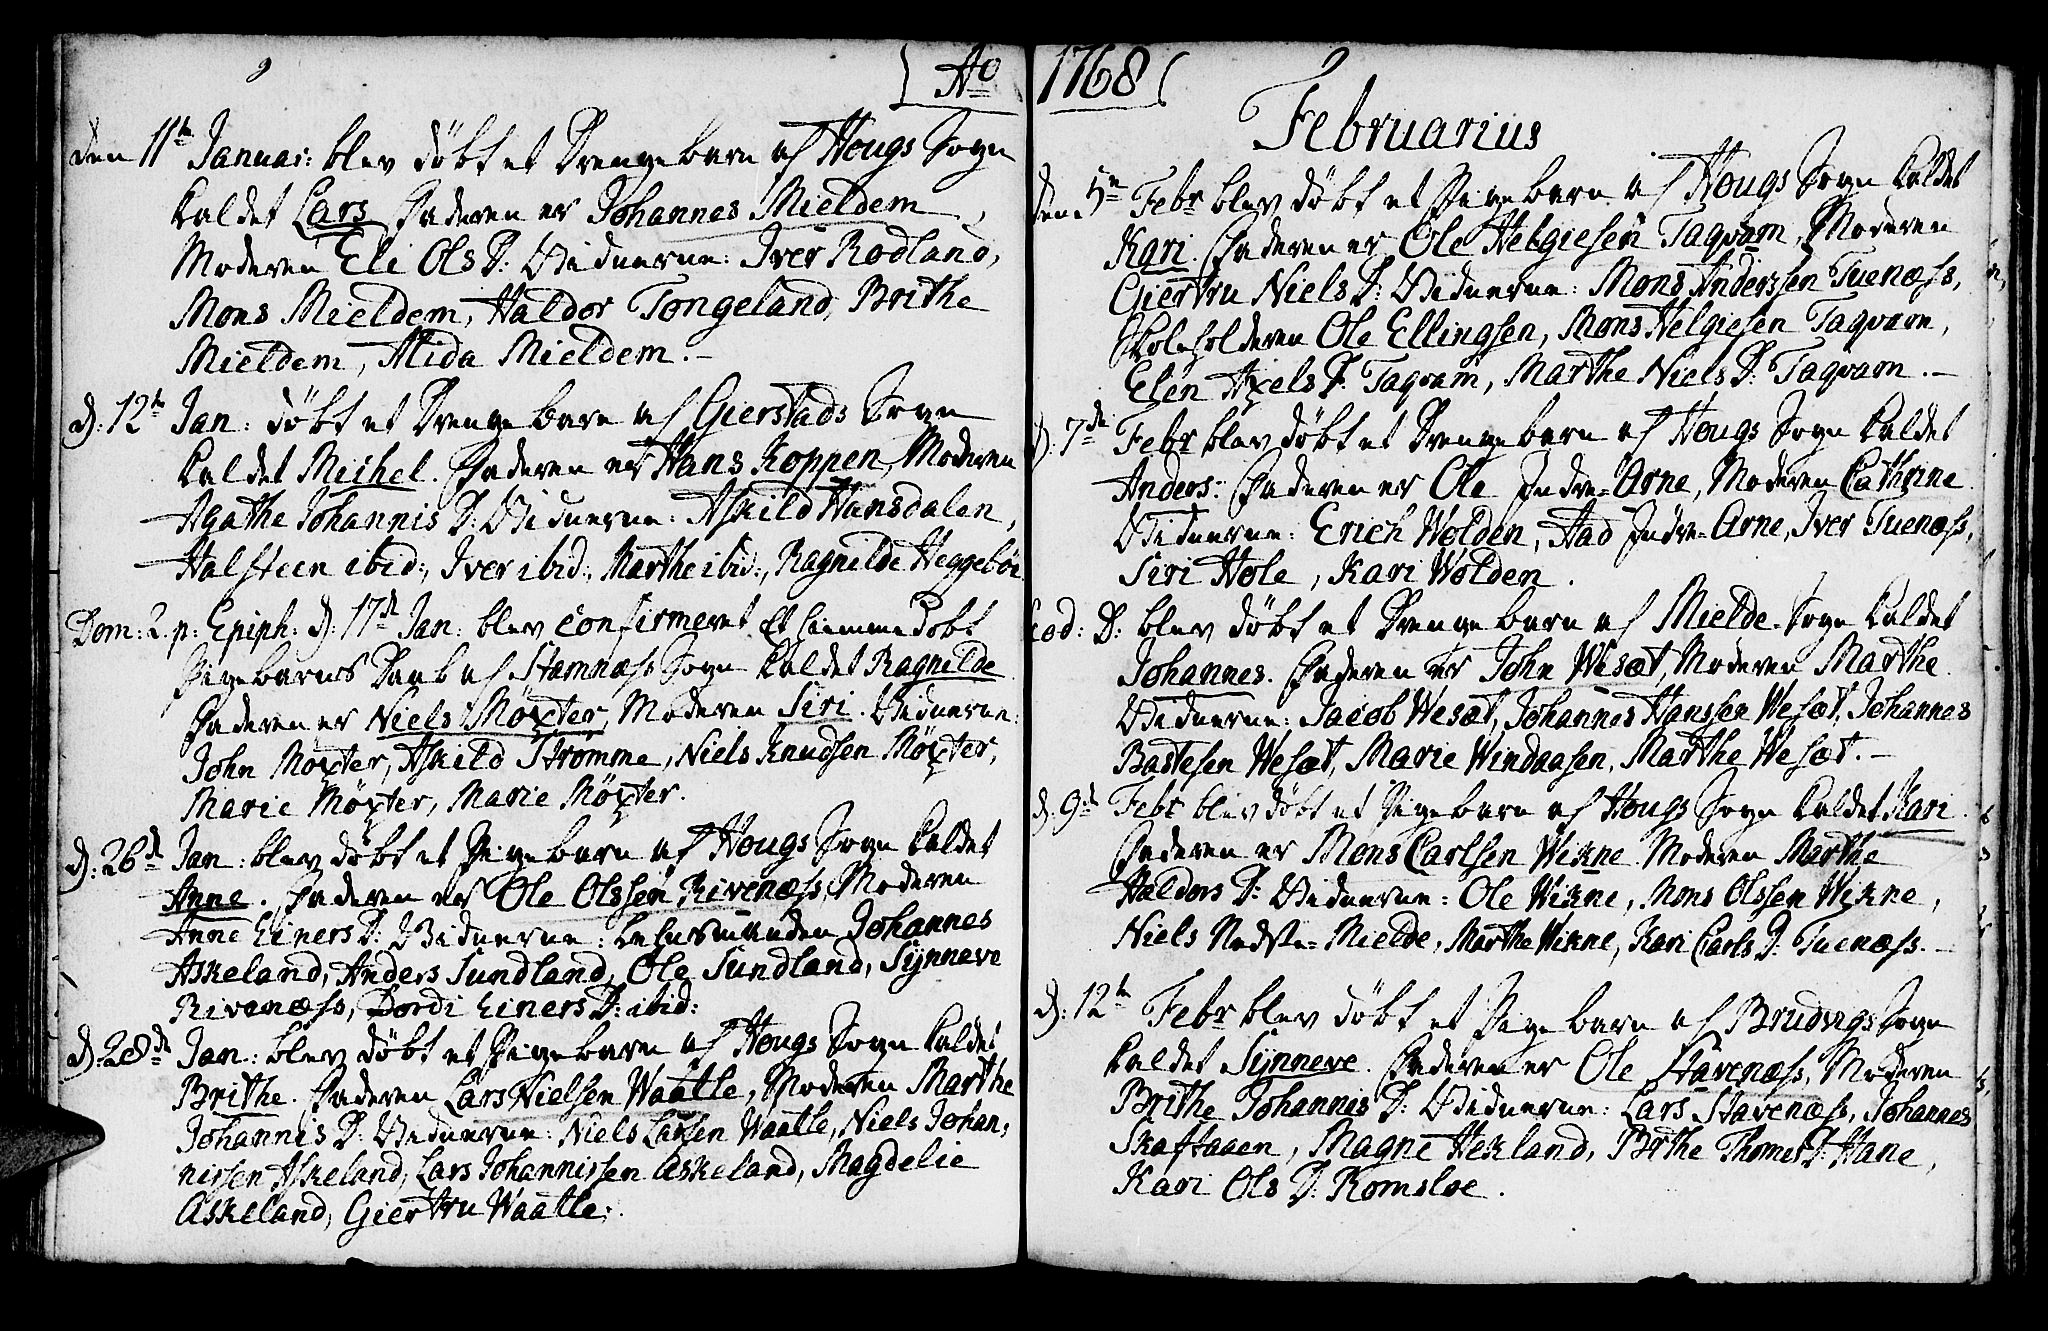 Ao 1768
den 11te Januar: blev døbt et Drengebarn af Hougs Sogn
kaldet Lars Faderen er Johannes Mieldem,
Moderen Eli Ols D: Vidnerne: Iver Rødland,
Mons Mieldem, Haldor Tongeland, Brithe
Mieldem, Alida Mieldem.
d: 12te Jan: døbt et Drengebarn af Gierstads Sogn
kaldet Meihel. Faderen er Hans Koppen, Moderen
Agathe Johannis D: Vidnerne: Askild Hansdalen,
Halsteen ibid:, Iver ibid:, Marthe ibid:, Ragnilde Heggebøe
Dom: 2. p: Epiph: d: 17de Jan: blev confirmeret et hiemmedøbt
Pigebarns Daab af Stamnæss Sogn kaldet Ragnilde
Faderen er Niels Møxter, Moderen Siri. Vidnerne:
John Møxter, Askild Strømme, Niels Knudsen Møxter,
Marie Møxter, Marie Møxter.
d: 26de Jan: blev døbt et Pigebarn af Hougs Sogn kaldet
Anne. Faderen er Ole Olssen Rivenæss, Moderen
Anne Einers D: Vidnerne: Lehnsmanden Johannes
Askeland, Anders Sundland, Ole Sundland, Synneve
Rivenæss, Dordi Einers D: ibid:
d: 28de Jan: blev døbt et Pigebarn af Hougs Sogn kaldet
Brithe. Faderen Lars Nielsen Waatle, Moderen Marthe
Johannis D: Vidnerne: Niels Larsen Waatle, Niels Johan,
nissen Askeland, Lars Johannissen Askeland, Magdelie
Askeland, Giertru Waatle.
Februarius
den 5te Febr blev døbt et Pigebarn af Hougs Sogn kaldet
Kari. Faderen er Ole Helgiesen Taqvam, Moderen
Giertru Niels D: Vidnerne: Mons Anderssen Tuenæss,
Skoleholderen Ole Ellingsen, Mons Helgiesen Taqvam,
Elen Axels D: Taqvam, Marthe Niels D: Taqvam.
d: 7de Febr blev døbt et Drengebarn af Hougs Sogn kaldet
Anders: Faderen er Ole Indre=Arne, Moderen Cathrine
Vidnerne: Erich Wolden, Aad Indre=Arne, Iver Tuenæss,
Siri Hole, Kari Wolden.
Eod: D: blev døbt et Drengebarn af Mielde Sogn kaldet
Johannes. Faderen er John Wesæt, Moderen Marthe
Vidnerne: Jacob Wesæt, Johannes Hanssen Wesæt, Johannes
Bastesen Wesæt, Marie Windaasen, Marthe Wesæt.
d: 9de Febr blev døbt et Pigebarn af Hougs Sogn kaldet Kari.
Faderen er Mons Carlsen Wikne Moderen Marthe
Haldors D: Vidnerne: Ole Wikne, Mons Olssen Wikne,
Niels Nedste=Mielde, Marthe Wikne, Kari Carls D: Tuenæss.
d: 12te Febr blev døbt et Pigebarn af Brudvigs Sogn
kaldet Synneve. Faderen er Ole Stavenæss, Moderen
Brithe Johannis D: Vidnerne: Lars Stavenæss, Johannes
Skaftaaen, Magne Hekland, Brithe Thomes D: Hane,
Kari Ols D: Romsloe.